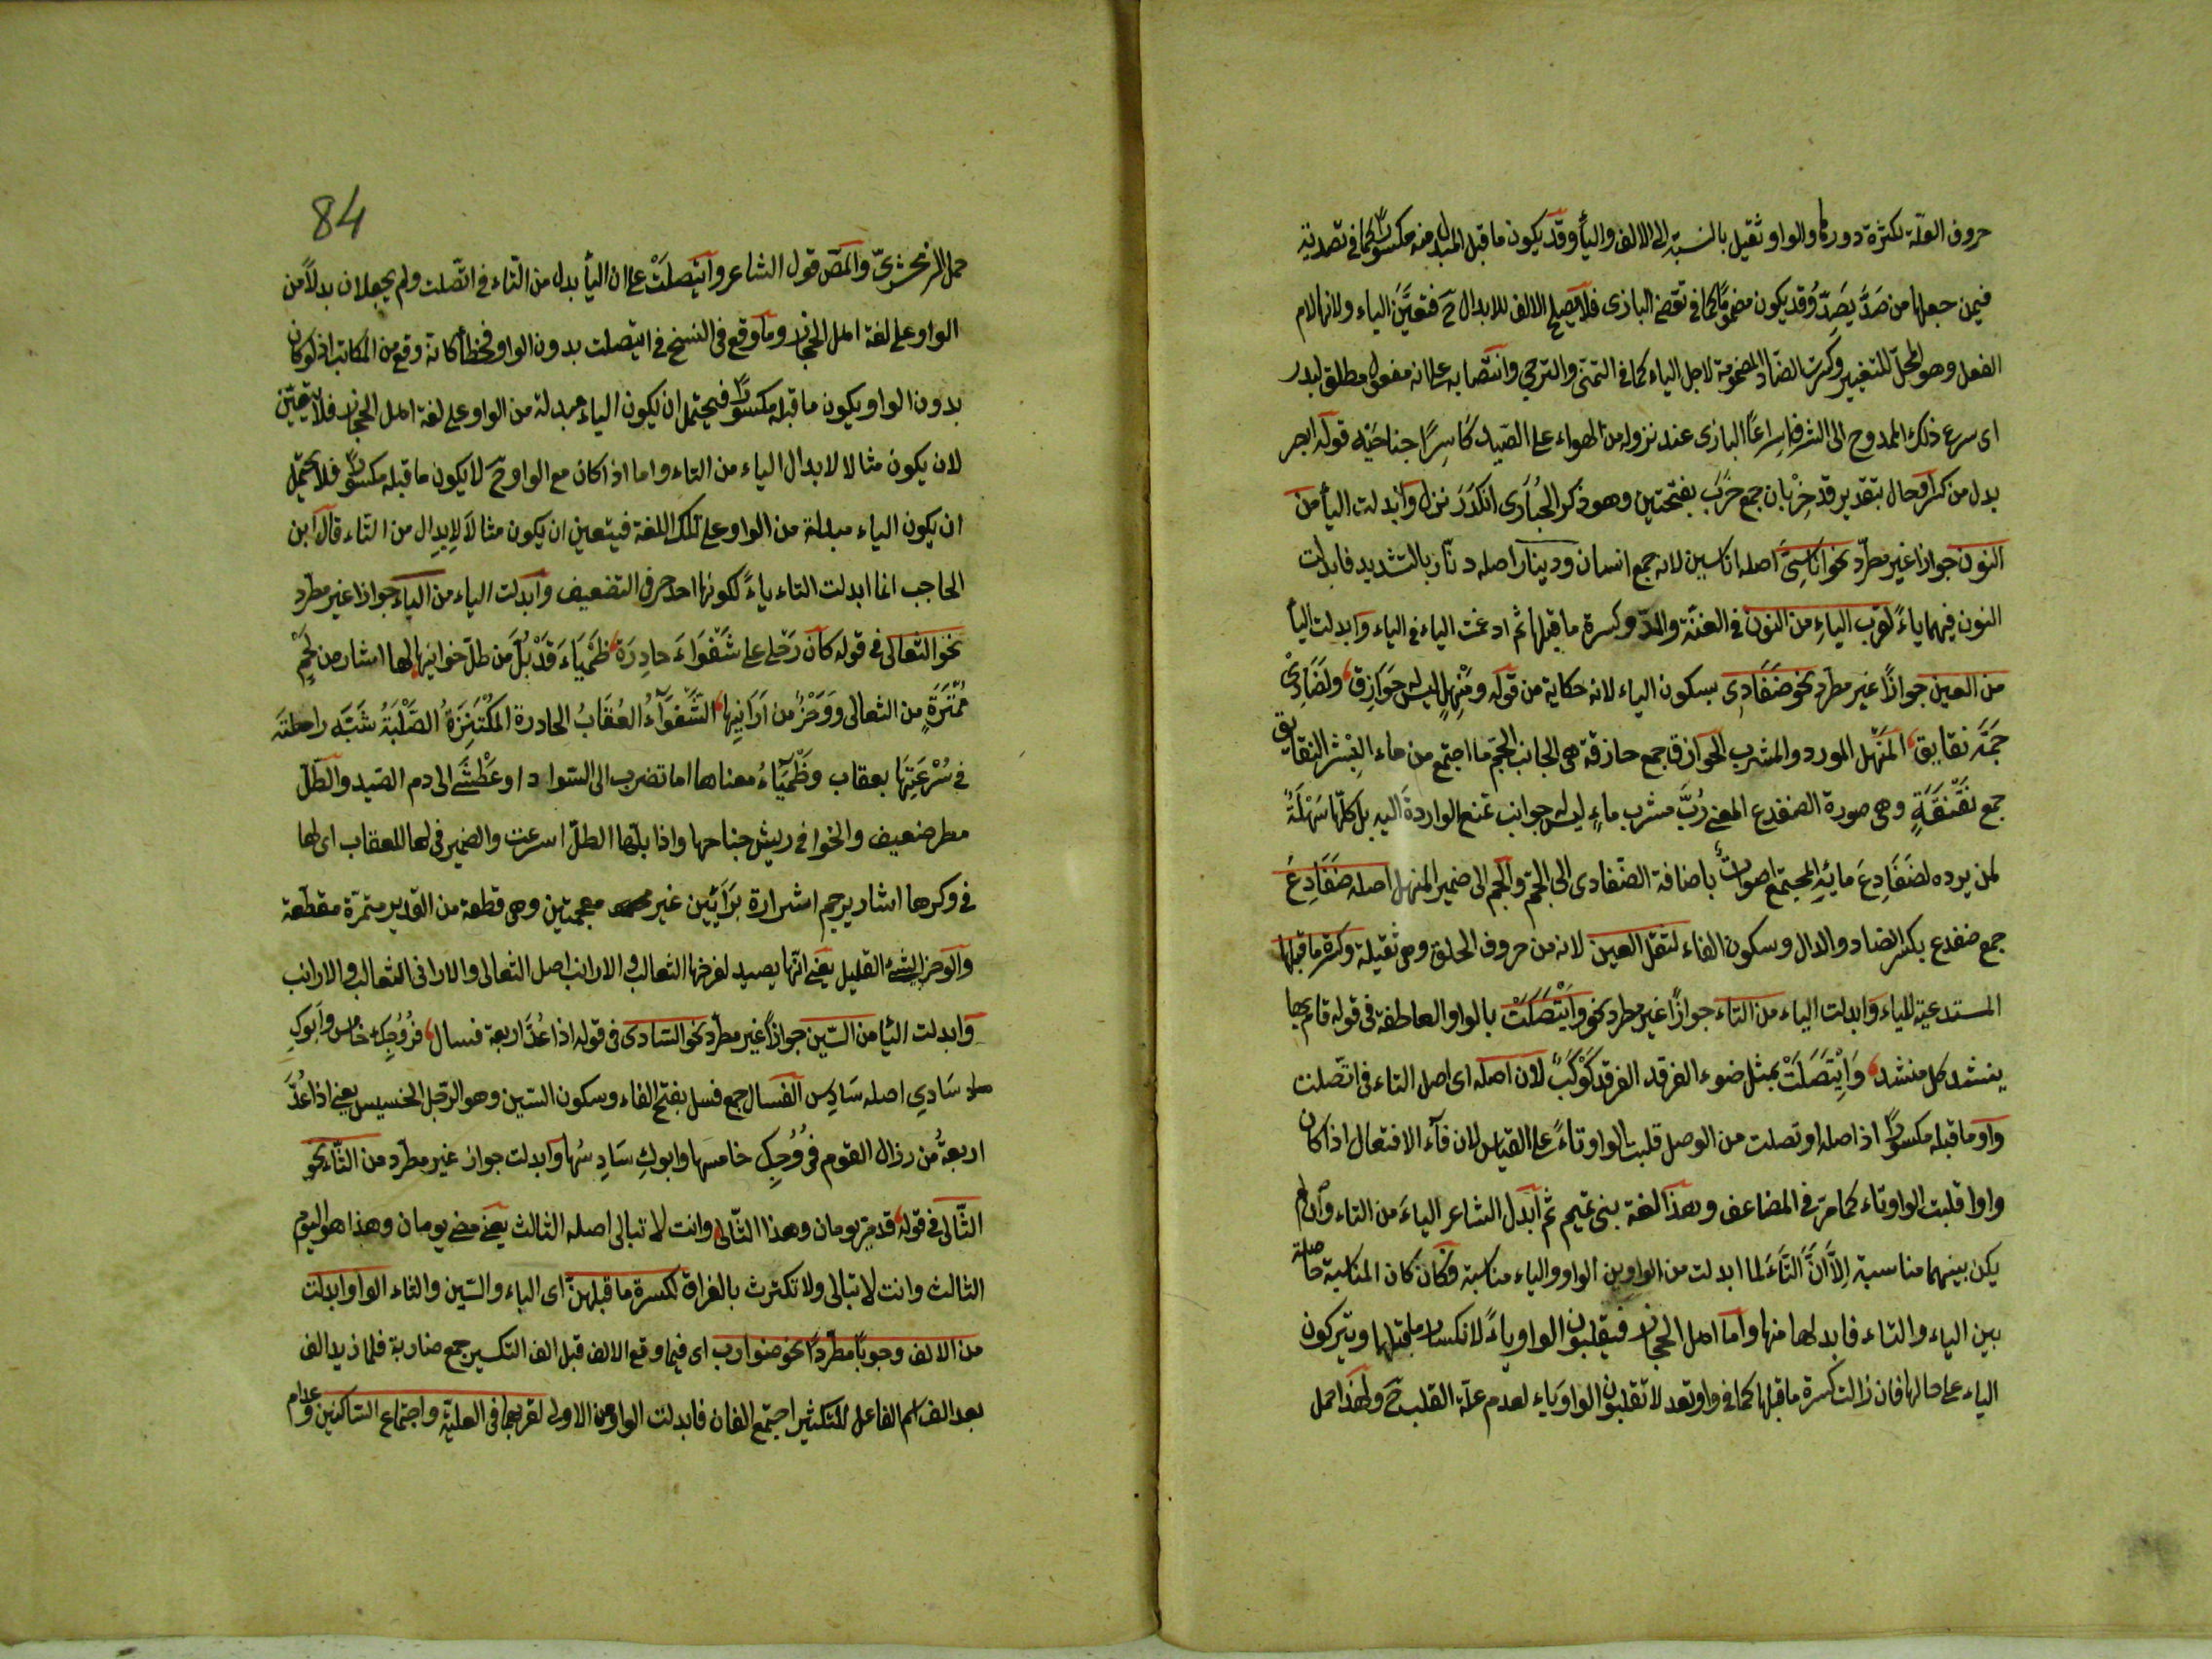 حروف العلة لكثرة دورها والواو ثقيل بالنسبة الى الالف واليأ وقد يكون ما قبل المبدل منه مكسورًا كما في تصدية
فيمن جعلها من صَدَّ يَصِدّ وقد يكون مضمومًا كما في تقضى البازى فلا يصلح الالف للابدال حَ فتعيَّنَ الياء ولانها لام
الفعل وهو المحلّ للتغيير وكسرت الضاد المضمومة لاجل الياء كما في التمنى والترجى وانتصابه على انه مفعول مطلق لبدر
اى سرع ذلك الممدوح الى الشرف اسراعًا البازى عند نزوله من الهواء على الصّيد كَاسِرًا جناحَيْه قوله ابصر
بدل من كسر حال بتقدير قد خِرْبان جمع خَرَبَ بفتحتين وهو ذكر الحُبارَى انْكَدَرَ نزل وابدلت اليأ من
النون جوازا غير مطرّد نحو اناسِىّ اصله اناسين لانه جمع انسان ودينار اصله دنّار بالتشديد فابدلت
النون فيهما ياءً لقرب الياءِ من النون في الغنّة والمدّ وكسرة ما قبلها ثم ادغمت الياء في الياء وابدلت اليأ
من العين جوازًا غير مطرد نحو ضَفَادِى بسكون الياء لانه حكاية من قوله ومَنْهلٍ ليس له حَوَازِق ولضَفَادِىْ
جَمّه نقانِق المَنْهل المورد والمشرب الحوازق جمع حازقة هى الجانب الجم ما اجتمع من ماء البئر النقانق
جمع نَقْنَقَةٍ وهى صورة الضفدع المعنى رُبَّ مشرب ماءٍ ليس له جوانب تمنع الواردةَ اليه بل كلّها سَهْلَةٌ
لمن يرده لضَفَادِعَ مائِهِ المجتمع اصواتٌ باضافة الضّفادى الى الجمّ والجم الى ضمير المنهل اصله ضَفَادِعَ
جمع ضفدع بكسر الضاد والدال وسكون الفاء لثقل العين لانه من حروف الحلق وهى ثقيلة وكسرة ما قبلها
المستدعية للياء وابدلت الياء من التاء جوازًا غير مطرد نحو وايْتَصَلَتْ بالواو العاطفة في قوله قام بها
ينشد كل منشد وَايْتَصَلَتْ بمثل ضوء الفرقد الفرقد كَوْكَبٌ لان اصله اى اصل التاء في اتّصلت
واو ما قبله مكسورًا اذ اصله اوتصلت من الوصل قلبت الواو تاءً على القياس لان فآء الافتعال اذا كان
واوا قلبت الواو تاء كما مرّ في المضاعف وهذا لغة بنى تميم ثم ابدل الشاعر الياءَ من التاء وان لم
يكن بينهما مناسبة اِلَّا اَنَّ التَّاءَ لما ابدلت من الواو وبين الواو والياء مناسبة فكان كان المناسبة حاصلة
بين الياء والتاء فابدلها منها واما اهل الحجاز فيقلبون الواو ياءً لانكسار ما قبلها ويتركون
الياء على حالها فان زالت كسرة ما قبلها كما في واوتعد لا تقلبون الواو ياء لعدم علّة القلب حَ ولهذا حمل
84
حمل الزمخشرىّ والمص قول الشاعر وايتَصلَتْ على ان اليأ بدل من التاء في اتّصلت ولم يجعلان بدلًا من
الواو على لغة اهل الحجاز وما وقع في النسخ في ايتصلت بدون الواو فخطأ كانه وقع من الكاتب اذ لو كان
بدون الواو يكون ما قبله مكسورًا فيحتمل ان يكون الياء مبدلة من الواو على لغة اهل الحجاز فلا يتعيّن
لان يكون مثالا لابدال الياء من التاء واما اذا كان مع الواو حَ لا يكون ما قبله مكسورًا فلا يحتمل
ان يكون الياء مبدلة من الواو على تلك اللغة فيتعين ان يكون مثالًا لابدال من التاء قال ابن
الحاجب انما ابدلت التاء ياءً لكونها احد حرفى التضعيف وابدلت الياء من الباء جوازا غير مطرد
نحو الثعالى في قوله كأن رَحْلى على شَغْوَاءَ حادِرَة ظَمْيَاءَ قَدْ بُلَّ من طلّ خوافيها لها اشارير من لَحْمٍ
مُتَمّرَةٍ من الثعالى ووَخْزٌ من اَرَانِيها الشَّغْوَآءُ العُقَابُ الحادرة المُكْتَنِزَةُ الصَّلْبَةُ شَبَّه راحلتَه
في سُرْعَتِهَا بعقاب وظَمْيَآءُ معناها اما تضرب الى السّواد او عَطْشَى الى دم الصّيد والطّلّ
مطر ضعيف والخوافى ريش جناحها واذا بلّها الطلّ اسرعت والضمير في لها للعقاب اى لها
في وكرها اشارير جمع اشرارة برَائَيْنِ غير معجمتين وهى قطعة من القدير متمّرة مقطّعة
والوخز الشئ القليل يعنى انّها يصيد لفرخها الثعالب والارانب اصل الثعالى والارانى الثعالب والارانب
وابدلت اليأ من السّين جوازًا غير مطرّد نحو السّادى في قوله اذا عُدّ اربعة فسال فزُوْجُكِ خامس وابوكِ
سَادى اصله سَادِس الفسال جمع فسل بفتح الفاء وسكون السّين وهو الرّجل الخسيس يعنى اذا عُدَّ
اربعةٌ من رذال القوم فزُوْجُكِ خامسها وابوكِ سَادِسُها وابدلت جواز غير مطّرد من الثّاء نحو
الثّالى في قوله قد مرّ يومان وهذا الثّالى وانت لا تبالى اصله الثالث يعنى مضى يومان وهذا هو اليوم
الثالث وانت لا تبالى ولا تكترث بالفراق لكسرة ما قبلهنّ اى الباء والسّين والثاء الواو ابدلت
من الالف وجوبًا مطّردًا نحو ضوارب اى فيما وقع الالف قبل الف التكسير جمع ضاربة فلما زيد الف
بعد الف اسم الفاعل للتكثير اجتمع الفان فابدلت الواو من الاولى لقربهما في العليّة واجتماع السّاكنين وعدم